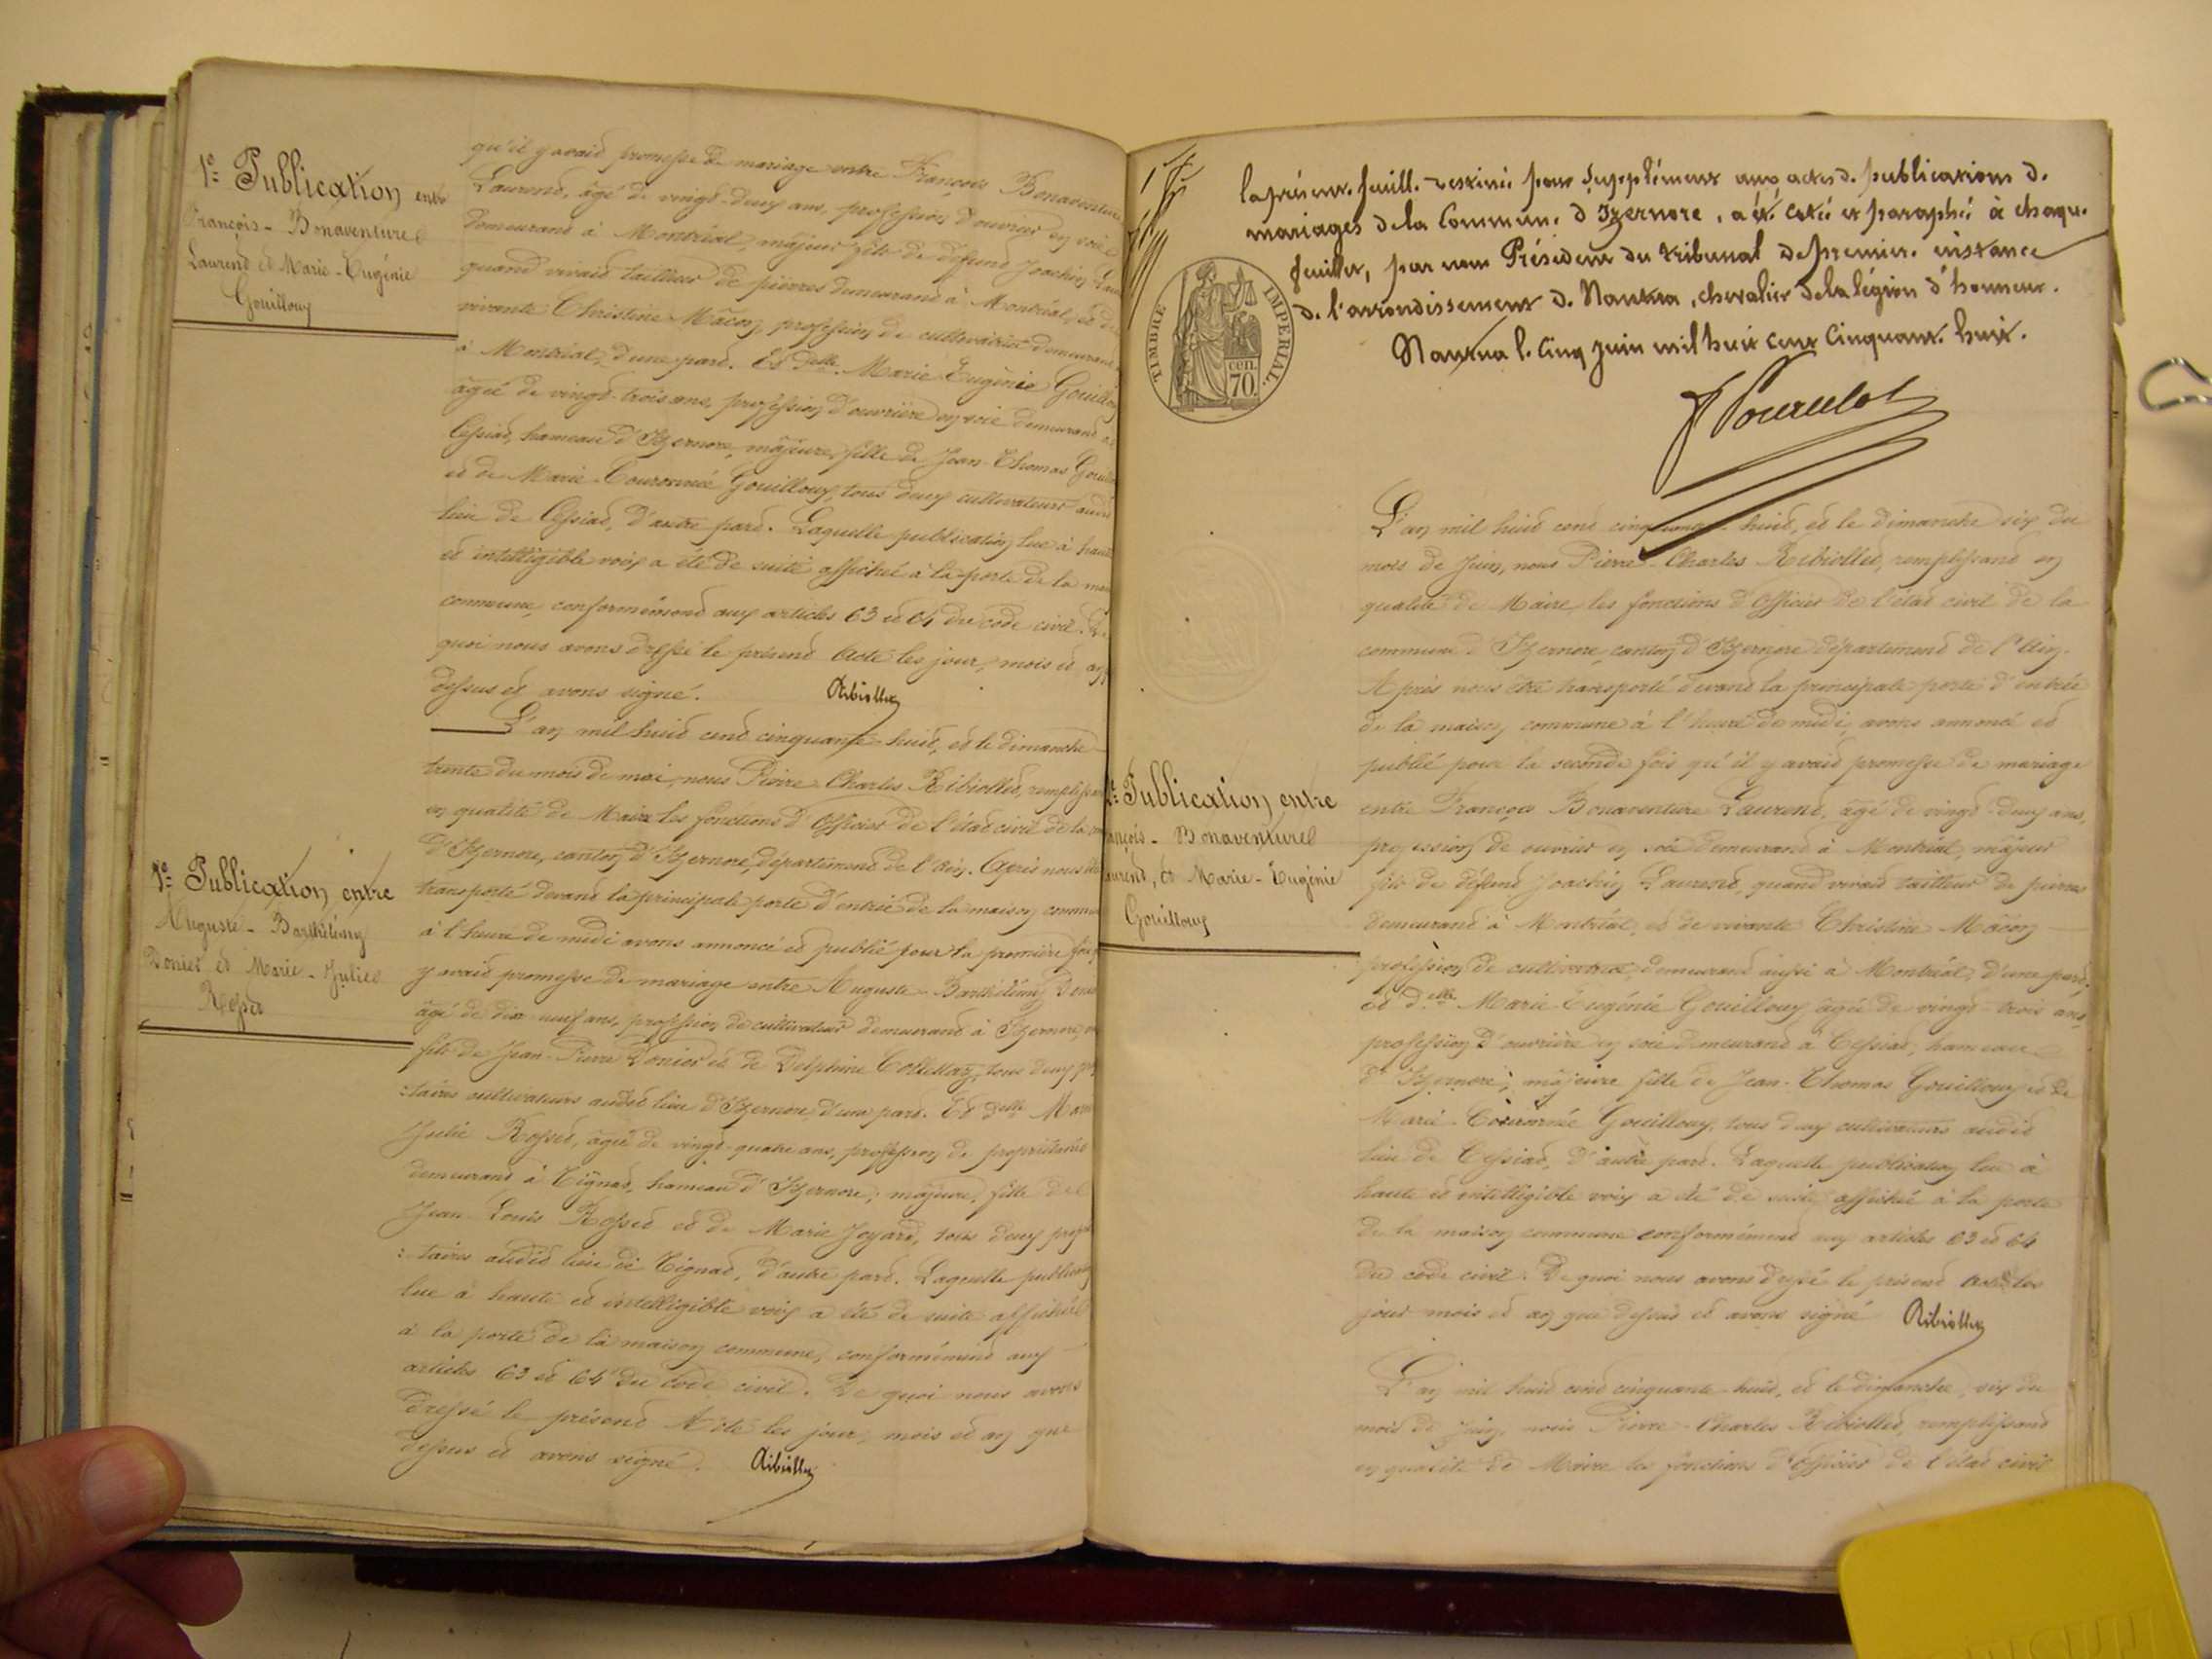 1e Publication entre
François-Bonaventure
Laurent et Marie-Eugénie
Gouilloux
qu'il y avait promesse de mariage entre François Bonaventure
Laurent, âgé de vingt-deux ans, profession d'ouvrier en soie
demeurant à Montréal, majeur fils de défunt Joachin
quand vivait tailleur de pierres demeurant à Montréal, et de
vivante Christine Mâcon, profession de cultivatrice demeurant
à Montréal, d'une part. Et Delle Marie Eugénie Gouilloux
âgée de vingt-trois ans, profession d'ouvrière en soie demeurant à
Cessiat, hameau d'Izernore, majeure, fille de Jean-Thomas
et de Marie-Couronnée Gouilloux, tous deux cultivateurs audit
lieu de Cessiat, d'autre part. Laquelle publication lue à haute
et intelligible voix a été de suite affichée à la porte de la
commune, conformément aux articles 63 et 64 du code civil. De
quoi nous avons dressé le présent Acte les jour, mois et an
dessus et avons signé. Ribiollet
L'an mil huit cent cinquante-huit, et le dimanche
trente du mois de mai, nous Pierre Charles Ribiollet,
en qualité de Maire les fonctions d'Officier de l'état civil de la
d'Izernore, canton d'Izernore, département de l'Ain. Après nous être
transporté devant la principale porte d'entrée de la maison commune
à l'heure de midi avons annoncé et publié pour la première fois
y avait promesse de mariage entre Auguste-Barthélémy
1e Publication entre
Auguste-Barthélémy
Donier et Marie-Julie
Rosset
âgé de dix neuf ans, profession de cultivateur demeurant à Izernore,
fils de Jean-Pierre Donier et de Delphine Collettaz, tous deux
:taires cultivateurs audit lieu d'Izernore d'une part. Et Delle Marie
Julie Rosset, âgée de vingt-quatre ans, profession de propriétaire
demeurant à Tignat, hameau d'Izernore; majeure, fille de
Jean-Louis Rosset et de Marie Joyard, tous deux
:taires audit lieu de Tignat, d'autre part. Laquelle publication
lue à haute et intelligible voix a été de suite affichée
à la porte de la maison commune, conformément aux
articles 63 et 64 du code civil. De quoi nous avons
dressé le présent Acte les jour, mois et an que
dessus et avons signé. Ribiollet
la présente feuille destinée pour supplément aux actes de publications de
mariages de la Commune d'Izernore, a été cotée et paraphée à chaque
feuillet, par nous Président du tribunal de première instance
de l'arrondissement de Nantua, chevalier de la légion d'honneur.
Nantua le cinq juin mil huit cent cinquante huit.
TIMBRE IMPERIAL.
70 cen.
L'an mil huit cent cinquante-huit, et le dimanche six du
mois de Juin, nous Pierre-Charles Ribiollet, remplissant en
qualité de Maire, les fonctions d'Officier de l'état civil de la
commune d'Izernore, canton d'Izernore département de l'Ain.
Après nous être transporté devant la principale porte d'entrée
de la maison commune à l'heure de midi, avons annoncé et
publié pour la seconde fois qu'il y avait promesse de mariage
2e Publication entre
François-Bonaventure
Laurent, et Marie-Eugénie
Gouilloux
entre François Bonaventure Laurent, âgé de vingt-deux ans,
profession de ouvrier en soie demeurant à Montréal, majeur
fils de défunt Joachin Laurent, quand vivait tailleur de pierres
demeurant à Montréal, et de vivante Christine Mâcon
profession de cultivatrice, demeurant aussi à Montréal, d'une part,
et Delle Marie Eugénie Gouilloux âgée de vingt-trois ans,
profession d'ouvrière en soie demeurant à Cessiat, hameau
d'Izernore; majeure fille de Jean-Thomas Gouilloux et de
Marie-Couronnée Gouilloux, tous deux cultivateurs audit
lieu de Cessiat, d'autre part. Laquelle publication lue à
haute et intelligible voix a été de suite affichée à la porte
de la maison commune conformément aux articles 63 et 64
du code civil. De quoi nous avons dressé le présent Acte les
jour mois et an que dessus et avons signé Ribiollet
L'an mil huit cent cinquante-huit, et le dimanche, six du
mois de Juin, nous Pierre-Charles Ribiollet, remplissant
en qualité de Maire les fonctions d'Officier de l'état civil